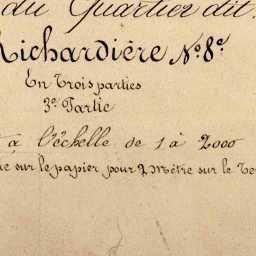 du Quartier dit
Richardière N.º 8.e
En Trois parties
3.e Partie
à l'échelle de 1 à 2000
sur le papier pour 2 mètre sur le Te